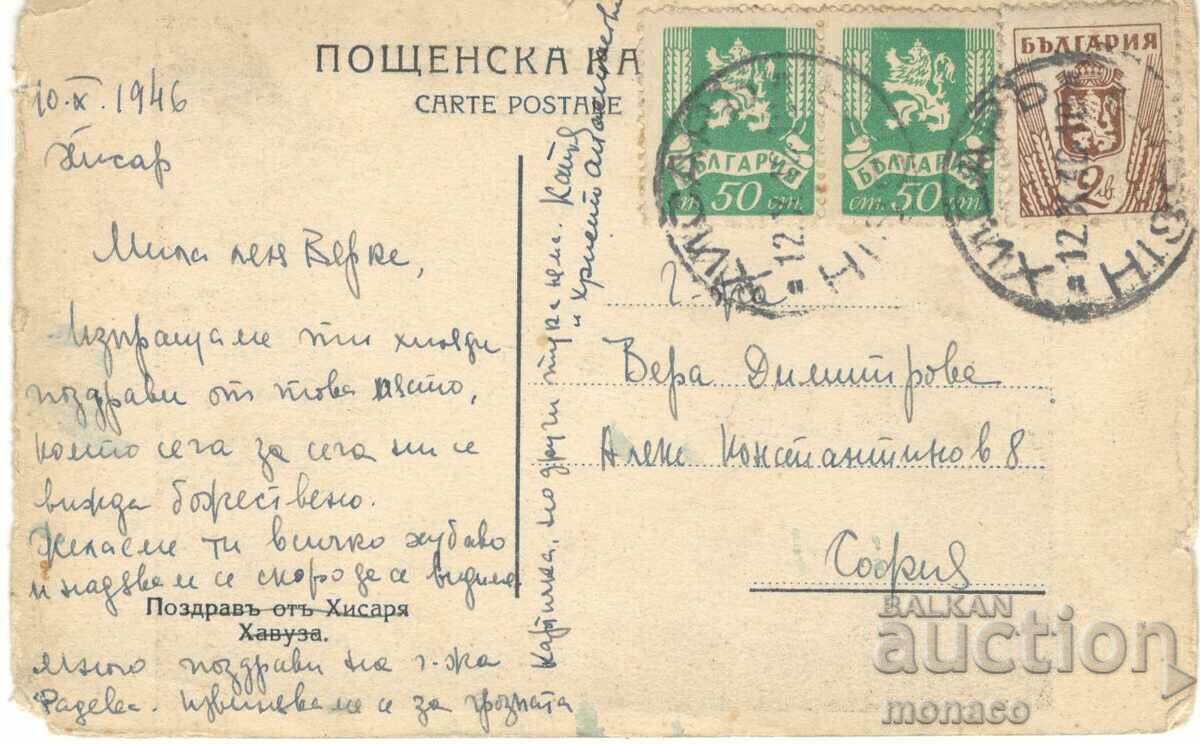 ПОЩЕНСКА КА
CARTE POSTALE
10.X.1946
Хисар
Мила леля Верке,
Изпращаме ти хиляди
поздрави от това място,
което сега за сега ни се
вижда божествено.
Желаеме ти всичко хубаво
и надяваме се скоро да се видиме
Поздравъ отъ Хисаря
Хавуза.
много поздрави на г-жа
Радева. Извиняваме се за грозната
картичка, но други тука нема. Катя
и
БЪЛГАРИЯ
50 ст.
БЪЛГАРИЯ
50 ст.
БЪЛГАРИЯ
2 лв
ХИСАР
12.X
ХИСАР
12.X
Г-жа
Вера Димитрова
Алеко Константинов 8
София
BALKAN
auction
monaco